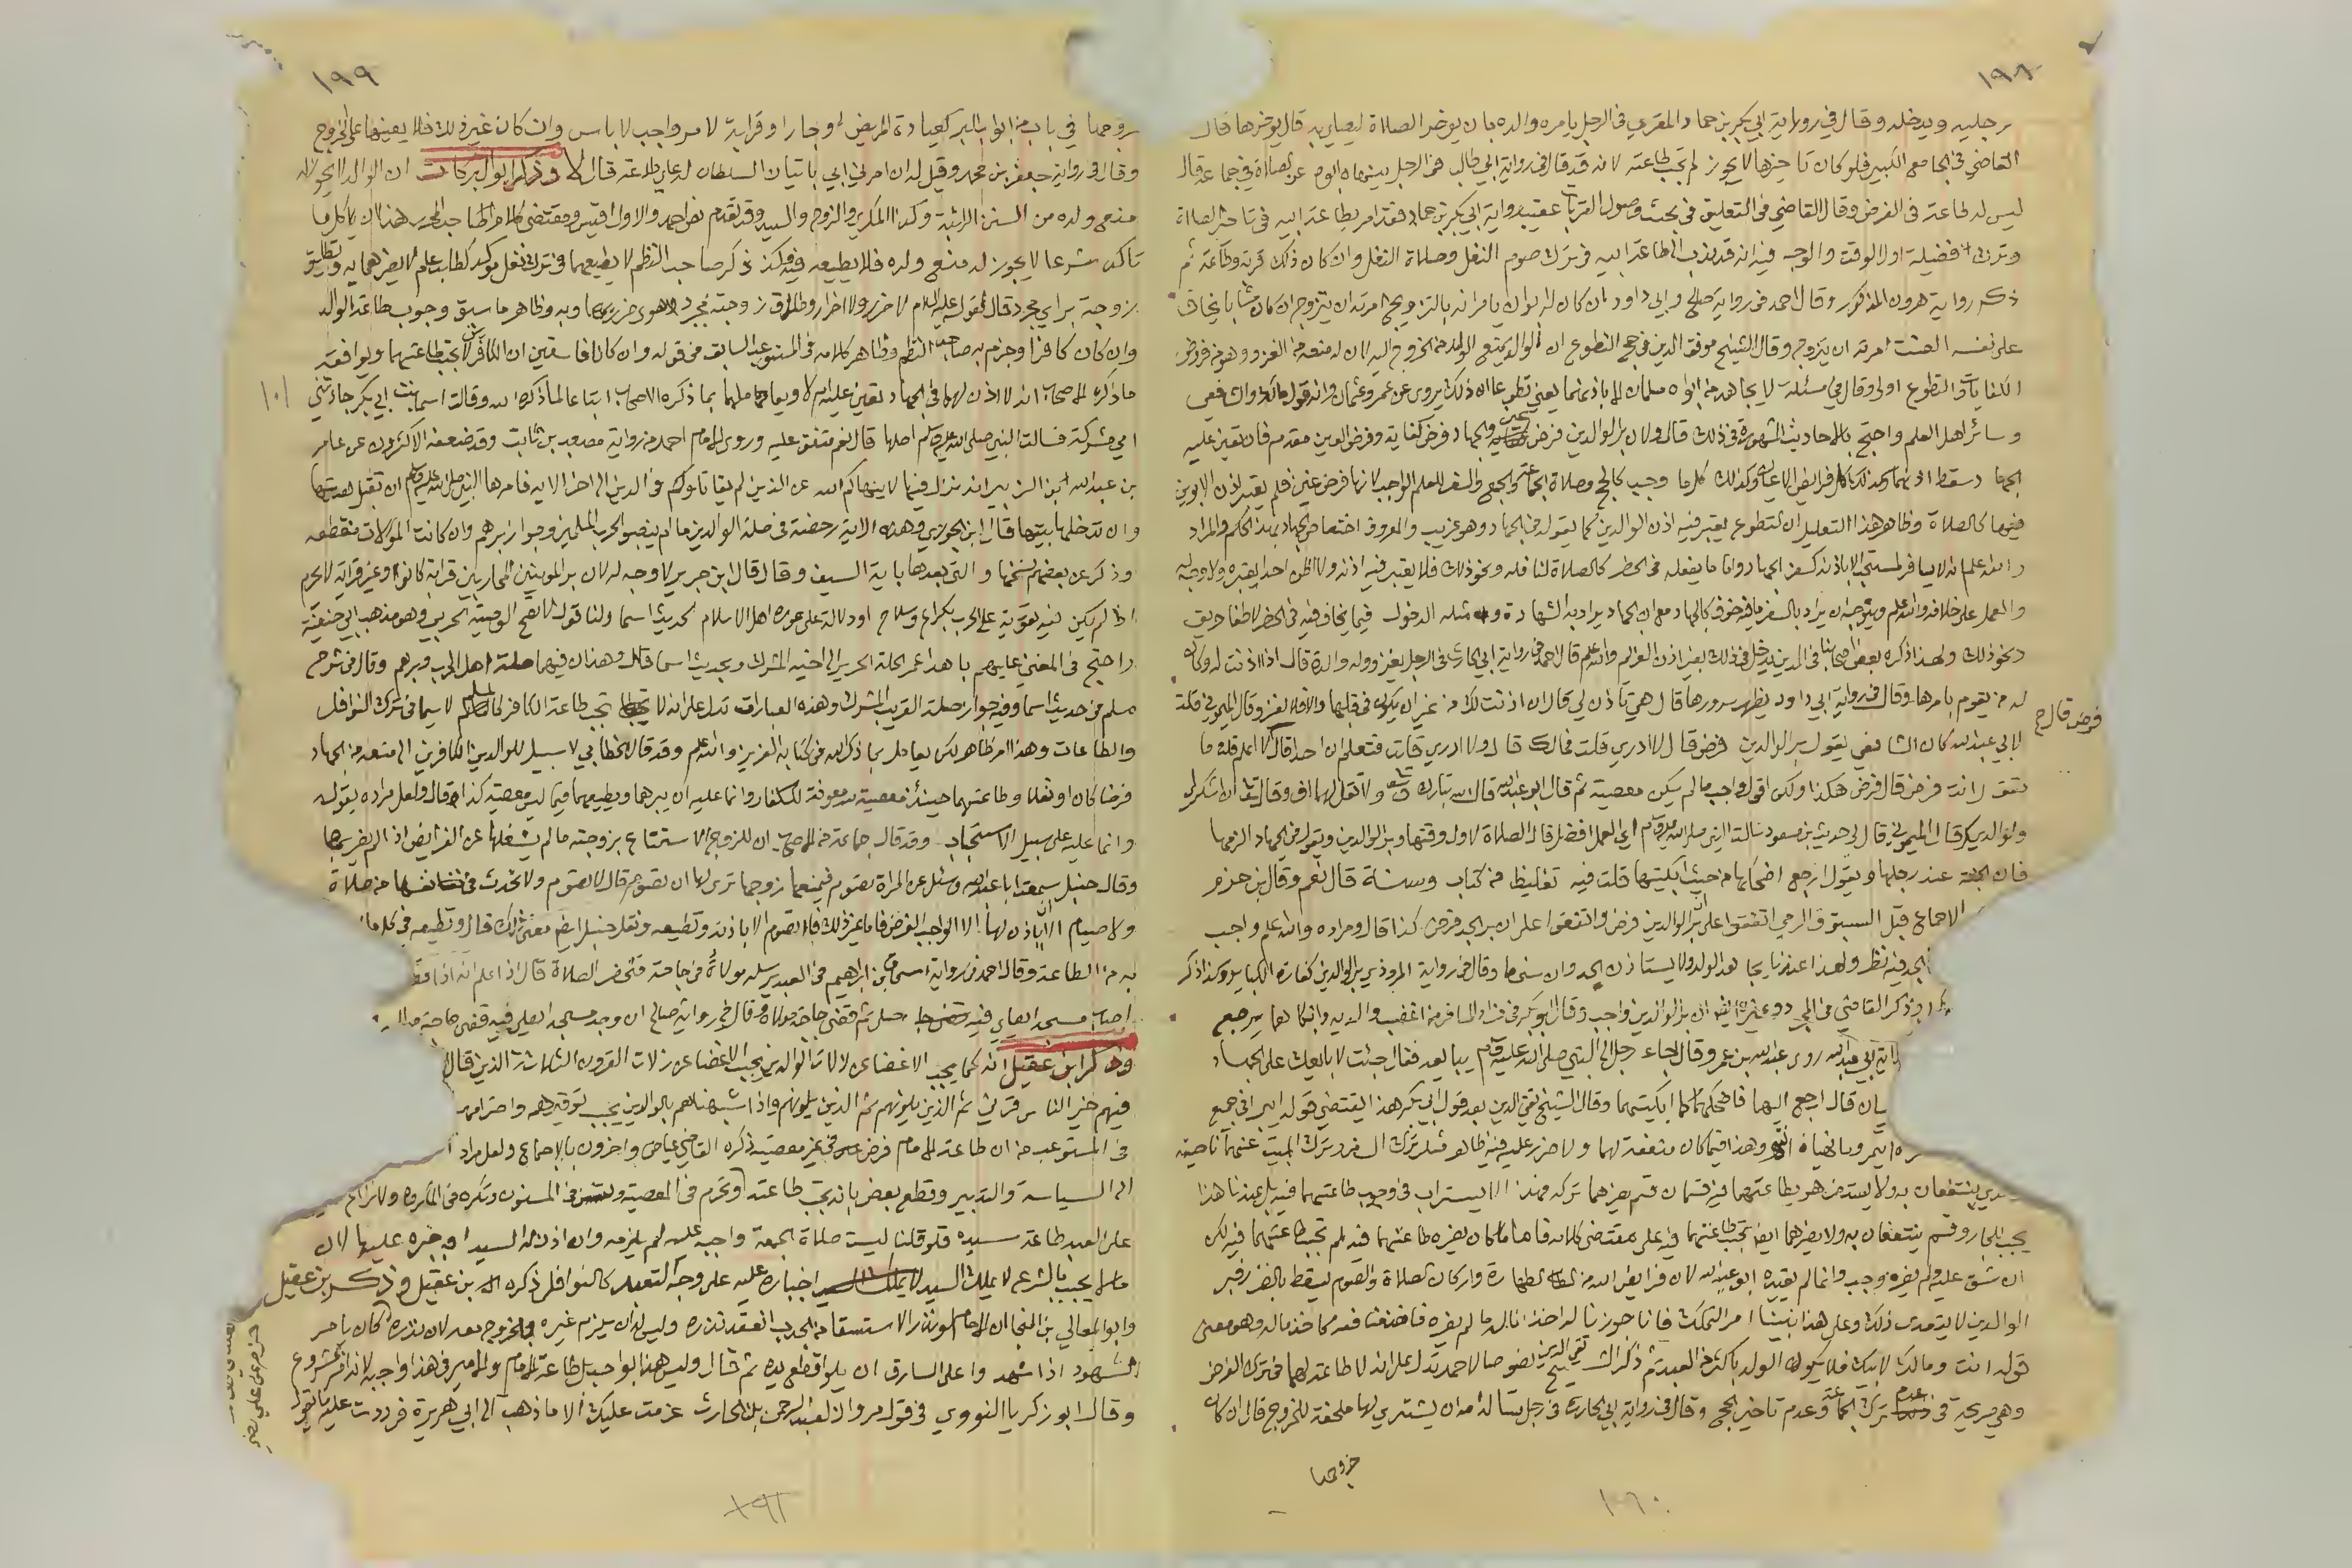 ١٩٨
رجليه ويدخله وقال في رواية ابي بكر بن حماد المقري في الرجل يامره والده بان يوخر الصلاة ليصلي به قال يوخرها قال
القاضي في الجامع الكبير فلو كان تاخيرها لا يجوز لم تجب طاعته لانه قد قال في رواية ابي طالب في الرجل ينهاه ابوه عن الصلاة في جماعة قال
ليس له طاعته في الفرض وقال القاضي في التعليق في بحث وصول القرب عقيب رواية ابي بكر بن حماد فقد امر بطاعة ابيه في تاخير الصلاة
وترك فضيلة اول الوقت والوجه فيه انه قد ندب الى طاعة ابيه في ترك صوم النفل وصلاة النفل وان كان ذلك قربة وطاعة ثم
ذكر رواية هرون المذكور وقال احمد في رواية صالح وابي داود ان كان له ابوان يامرانه بالتزويج امرته ان يتزوج او كان شابا يخاف
على نفسه العنت امرته ان يتزوج وقال الشيخ موفق الدين في حج التطوع ان للوالد منع الولد من الخروج اليه لان له منعه من الغزو وهو من فروض
الكفايات فالتطوع اولى وقال في مسئلة لا يجاهد من ابواه مسلمان الا باذنهما يعني تطوعا ان ذلك يروى عن عمر وعثمان وانه قول مالك والشافعي
وسائر اهل العلم واحتج بالاحاديث المشهورة في ذلك قال ولان بر الوالدين فرض عين والجهاد فرض كفاية وفرض العين مقدم فان تعين عليه
الجهاد سقط اذنهما وكذلك كل فرائض الاعيان وكذلك كلما وجب كالحج وصلاة الجماعة والجمع والسفر للعلم الواجب لانها فرض عين فلم يعتبر اذن الابوين
فيها كالصلاة وظاهر هذا التعليل ان التطوع يعتبر فيه اذن الوالدين كما يقوله في الجهاد وهو غريب والمعروف اختصاص الجهاد بهذا الحكم والمراد
والله اعلم انه لا يسافر لمستحب الا باذنه كسفر الجهاد واما ما يفعله في الحضر كالصلاة النافله ونحو ذلك فلا يعتبر فيه اذنه ولا اظن احدا يعتبره ولا وجه له
والعمل على خلافه والله اعلم ويتوجه ان يراد بالسفر ما فيه خوف كالجهاد مع ان الجهاد يراد به الشهادة ومثله الدخول فيما يخاف فيه في الحضر كاطفا حريق
ونحو ذلك ولهذا ذكره بعض اصحابنا في المدين يدخل في ذلك بغير اذن الغريم والله اعلم قال احمد في رواية ابي الحارث في الرجل يغزو وله والدة قال اذا اذنت له وكان
له من يقوم بامرها وقال في رواية ابي داود يظهر سرورها قال هي تاذن لي قال ان اذنت لك من غير ان يكون في قلبها والا فلا تغز وقال الميموني قلت
لابي عبد الله كان الشافعي يقول بر الوالدين فرض قال لا ادري قلت فمالك قال ولا ادري قلت فتعلم ان احدا قال لا اعلم قلت ما
تقول انت فرض قال فرض هكذا ولكن اقول واجب ما لم يكن معصية ثم قال ابو عبد الله قال الله تبارك وتعالى ولا تقل لهما اف وقال تعالى ان اشكر لي
ولوالديك قال الميموني قال لي حديث ابن مسعود سالت النبي صلى الله عليه وسلم اي العمل افضل قال الصلاة لاول وقتها وبر الوالدين ويقول في الجهاد الزمها
فان الجنة عند رجلها ويقول ارجع اضحكهما من حيث ابكيتهما قلت فيه تغليظ من كتاب وسنة قال نعم وقال بن حزم
الاجماع قبل السبق والرمي اتفقوا على بر الوالدين فرض واتفقوا على ان بر الجد فرض كذا قال ومراده والله اعلم واجب
الجد فيه نظر ولهذا عندنا يجاهد الولد ولا يستاذن الجد وان سخط وقال في رواية المروذي بر الوالدين كفارة الكبائر وكذا ذكر
وذكر القاضي في المجرد وغيره ايضا ان بر الوالدين واجب وقال ابو بكر في زاد المسافر من اغضب والديه وابكاهما يرجع
روى عبد الله بن عمرو قال جاء رجل الى النبي صلى الله عليه وسلم يبايعه فقال جئت لابايعك على الجهاد
قال ارجع اليهما فاضحكهما كما ابكيتهما وقال الشيخ تقي الدين بعد قول ابي بكر هذا يقتضي قوله ان يبرا في جميع
وهذا فيما كان منفعة لهما ولا ضرر عليه فيه ظاهر مثل ترك السفر وترك المبيت عنهما ناحية
ينتفعان به ولا يستضر هو بطاعتهما فيه قسمان قسم يضرهما تركه فهذا لا يستراب في وجوب طاعتهما فيه بل عندنا هذا
يجب للجار وقسم ينتفعان به ولا يضرهما ايضا تجب طاعتهما فيه على مقتضى كلامه فاما ما كان يضره طاعتهما فيه لم تجب طاعتهما فيه لكن
ان شق عليه ولم يضره وجب وانما لم يقيده ابو عبد الله لان فرائض الله من الطهارة واركان الصلاة والصوم تسقط بالضرر فبر
الوالدين لا يتعدى ذلك وعلى هذا بنينا امر التملك فانا جوزنا له اخذ ماله ما لم يضره فاخذ منافعه كاخذ ماله وهو معنى
قوله انت ومالك لابيك فلا يكون الولد باكثر من العبد ثم ذكر الشيخ تقي الدين نصوصا لاحمد تدل على انه لا طاعة لهما في ترك الفرض
وهي صريحة في عدم ترك الجماعة وعدم تاخير الحج وقال في رواية ابي الحارث في رجل تساله امه ان يشتري لها ملحفة للخروج قال ان كان
خروجها
فرض قال ح
١٩٩
خروجها في باب من ابواب البر كعيادة المريض او جار او قرابة لامر واجب لا باس وان كان غير ذلك فلا يعينها على الخروج
وقال في رواية جعفر بن محمد وقيل له ان امرني ابي باتيان السلطان له علي طاعته قال لا وذكر ابو البركات ان الوالد لا يجوز له
منع ولده من السنن الراتبة وكذا المكري والزوج والسيد وقد تقدم نص احمد والاول اقيس ومقتضى كلام صاحب المحرر هذا ان كل ما
تاكد شرعا لا يجوز له منع ولده فلا يطيعه فيه وكذا ذكر صاحب النظم لا يطيعهما في ترك نفل موكد كطلب علم لا يضرهما به وتطليق
زوجة براي مجرد قال لقوله عليه السلام لا ضرر ولا اضرار وطلاق زوجته بمجرد الهوى ضرر بها وبه وظاهر ما سبق وجوب طاعة الوالد
وان كان كافرا وجزم به صاحب النظم وظاهر كلامه في المستوعب السابق من قوله وان كانا فاسقين ان الكافرين لا تجب طاعتهما ويوافقه
ما ذكره الاصحاب انه لا اذن لهما في الجهاد تعين عليه ام لا ويعاملهما بما ذكره الاصحاب اتباعا لما ذكر الله وقالت اسما بنت ابي بكر جاءتني
امي مشركة فسالت النبي صلى الله عليه وسلم اصلها قال نعم متفق عليه وروى الامام احمد من رواية مصعب بن ثابت وقد ضعفه الاكثرون عن عامر
بن عبد الله ابن الزبير انه نزل فيها لا ينهاكم الله عن الذين لم يقاتلوكم في الدين الى اخر الاية فامرها النبي صلى الله عليه وسلم ان تقبل هديتها
وان تدخلها بيتها قال ابن الجوزي وهذه الاية رخصة في صلة الوالدين ما لم ينصبوا الحرب للمسلمين وجواز برهم وان كانت الموالات منقطعة
وذكر عن بعضهم نسخها والتي بعدها باية السيف وقال قال ابن جرير لا وجه له لان بر المومنين المحاربين قرابة كانوا وغير قرابة لا يحرم
اذا لم يكن فيه تقوية على الحرب بكراع وسلاح او دلالة على عورة اهل الاسلام لحديث اسما ولنا قول لا تصح الوصية لحربي وهو مذهب ابي حنيفة
واحتج في المغني عليهم باهدا عمر الحلة الحرير الى اخيه المشرك وبحديث اسما قال وهذان فيهما صلة اهل الحرب وبرهم وقال في شرح
مسلم في حديث اسما وفيه جواز صلة القريب المشرك وهذه العبارات تدل على انه لا تجب طاعة الكافر كالمسلم لا سيما في ترك النوافل
والطاعات وهذا امر ظاهر لكن يعامل بما ذكر الله في كتابه العزيز والله اعلم وقد قال الخطابي لا سبيل للوالدين الكافرين الى منعه من الجهاد
فرضا كان او نفلا وطاعتهما حينئذ معصية لله معونة للكفار وانما عليه ان يبرهما ويطيعهما فيما ليس معصية كذا قال ولعل مراده يقول
وانما عليه على سبيل الاستحباب وقد قال جماعة من الاصحاب ان للزوج الاستمتاع بزوجته ما لم يشغلها عن الفرائض اذا لم يضر بها
وقال حنبل سمعت ابا عبد الله وسئل عن المراة تصوم فيمنعها زوجها ترى لها ان تصوم قال لا تصوم ولا تحدث في نفسها من صلاة
ولا صيام الا ان ياذن لها الا الواجب الفرض فاما غير ذلك فلا تصوم الا باذنه وتطيعه ونقل حنبل ايضا معنى ذلك قال وتطيعه في كل ما
به من الطاعة وقال احمد في رواية اسحاق بن ابراهيم في العبد يرسله مولاه في حاجة فتحضر الصلاة قال اذا علم انه اذا قضى
اصاب مسجدا يصلي فيه صلى ثم قضى حاجة مولاه وقال في رواية صالح ان وجد مسجدا يصلي فيه قضى حاجة مولاه
وذكر ابن عقيل انه كما يجب الاغضاء عن زلات الوالدين يجب الاغضا عن زلات القرون الثلاثة الذين قال
فيهم خير الناس قرني ثم الذين يلونهم ثم الذين يلونهم واذا شبهناهم بالوالدين يجب توقيرهم واحترامهم
في المستوعب من ان طاعة الامام فرض في غير معصية ذكره القاضي عياض واخرون بالاجماع ولعل مراد
الى السياسة والتدبير وقطع بعض بانه تجب طاعته وتحرم في المعصية وتسن في المسنون وتكره في المكروه
على العبد طاعة سيده فلو قلنا ليست صلاة الجمعة واجبة عليه لم يلزمه وان اذن له السيد او جبره عليها لان
ما لا يجب بالشرع لا يملك السيد اجباره عليه على وجه التعبد كالنوافل ذكره ابن عقيل وذكر بن عقيل
وابو المعالي بن المنجا ان الامام لو نذر الاستسقا من الجدب انعقد نذره وليس له ان يلزم غيره بالخروج معه لان نذره كان يامر
الشهود اذا شهدوا على السارق ان يلوا قطع يده ثم قال وليس هذا بواجب بل طاعة الامام والامير في هذا واجبة لانه امر مشروع
وقال ابو زكريا النووي في قول مروان لعبد الرحمن بن الحارث عزمت عليك الا ما ذهبت الى ابي هريرة فرددت عليه ما يقول